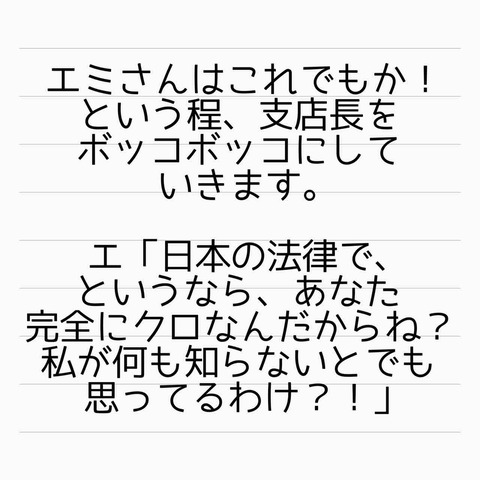 エミさんはこれでもか！
という程、支店長を
ボッコボッコにして
いきます。
エ「日本の法律で、
というなら、あなた
完全にクロなんだからね？
私が何も知らないとでも
思ってるわけ？！」